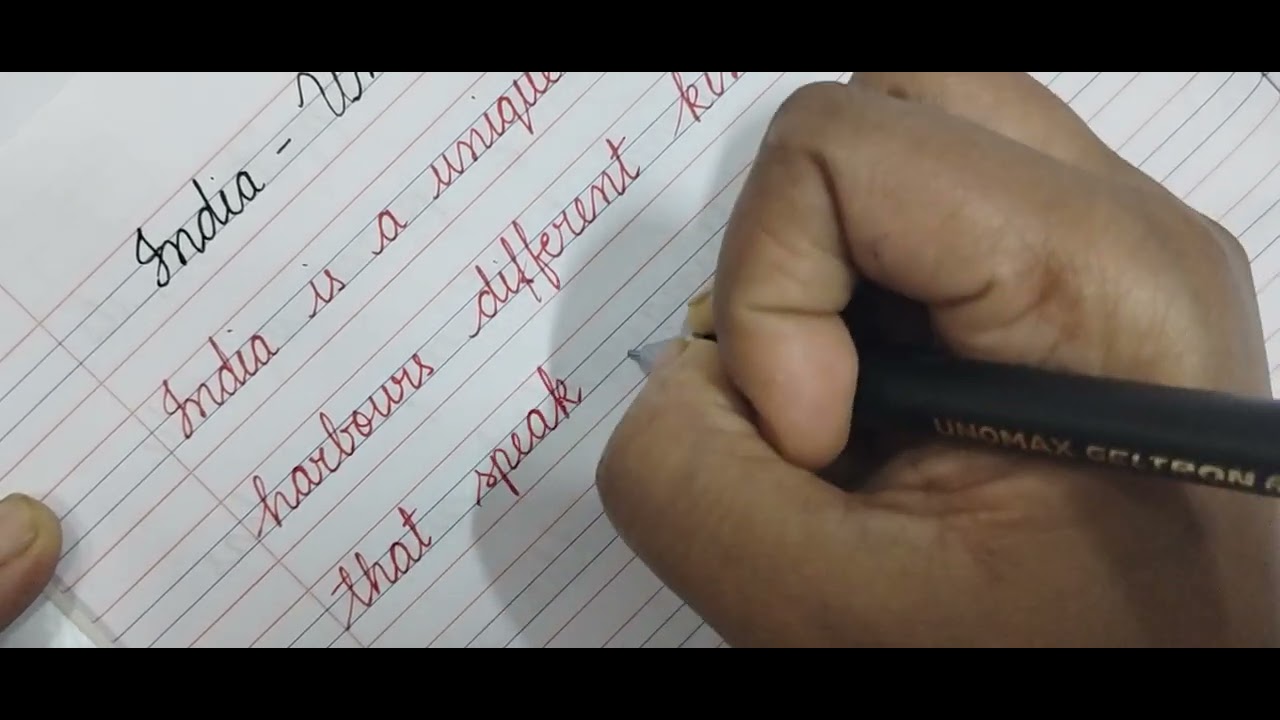 India -
India is a unique
harbours different
that speak
UNOMAX GELTRON